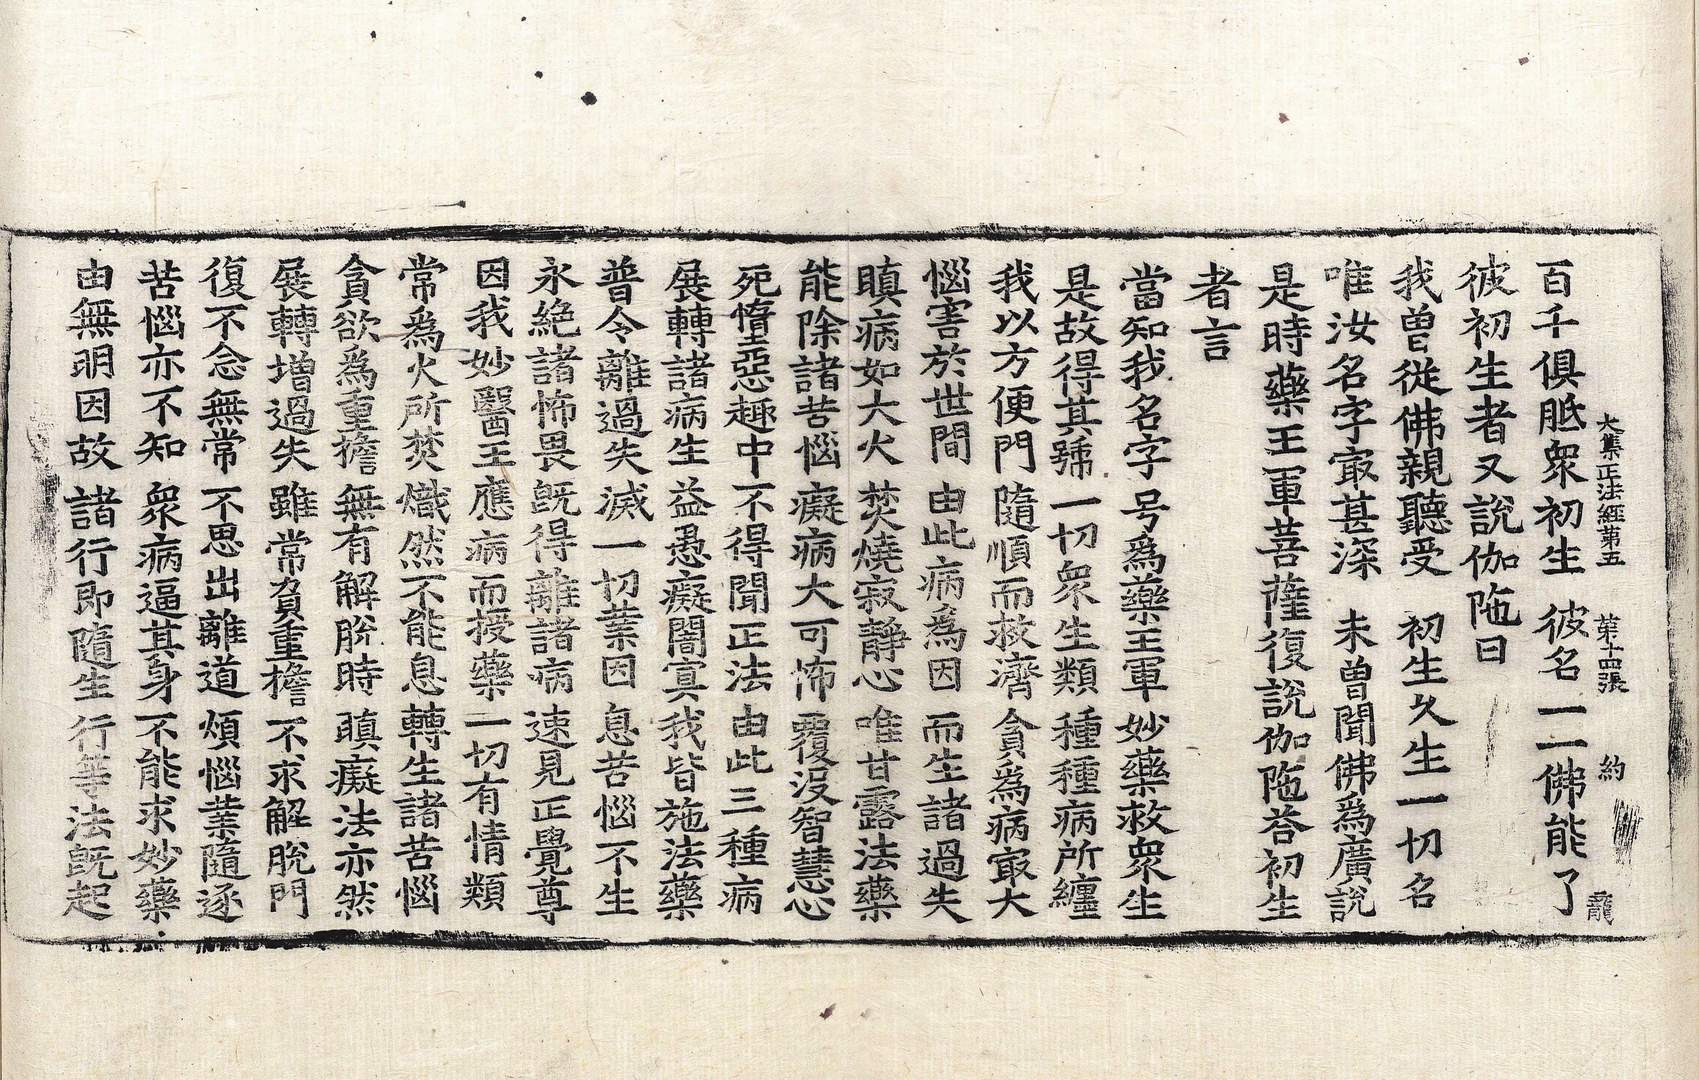 大集正法經第五　第十四張　約　龍
百千俱胝衆初生　彼名一一佛能了
彼初生者又說伽陁曰
我曾從佛親聽受　初生久生一切名
唯汝名字㝡甚深　未曾聞佛爲廣說
是時藥王軍菩薩復說伽陁荅初生
者言
當知我名字号爲藥王軍妙藥救衆生
是故得其號一切衆生類種種病所纏
我以方便門隨順而救濟貪爲病㝡大
惱害於世間由此病爲因而生諸過失
瞋病如大火焚燒寂靜心唯甘露法藥
能除諸苦惱癡病大可怖覆沒智慧心
死墮惡趣中不得聞正法由此三種病
展轉諸病生益愚癡闇冥我皆施法藥
普令離過失滅一切業因息苦惱不生
永絕諸怖畏旣得離諸病速見正覺尊
因我妙醫王應病而授藥一切有情類
常爲火所焚熾然不能息轉生諸苦惱
貪欲爲重擔無有解脫時瞋癡法亦然
展轉增過失雖常負重擔不求解脫門
復不念無常不思出離道煩惱業隨逐
苦惱亦不知衆病逼其身不能求妙藥
由無明因故諸行即隨生行等法旣起